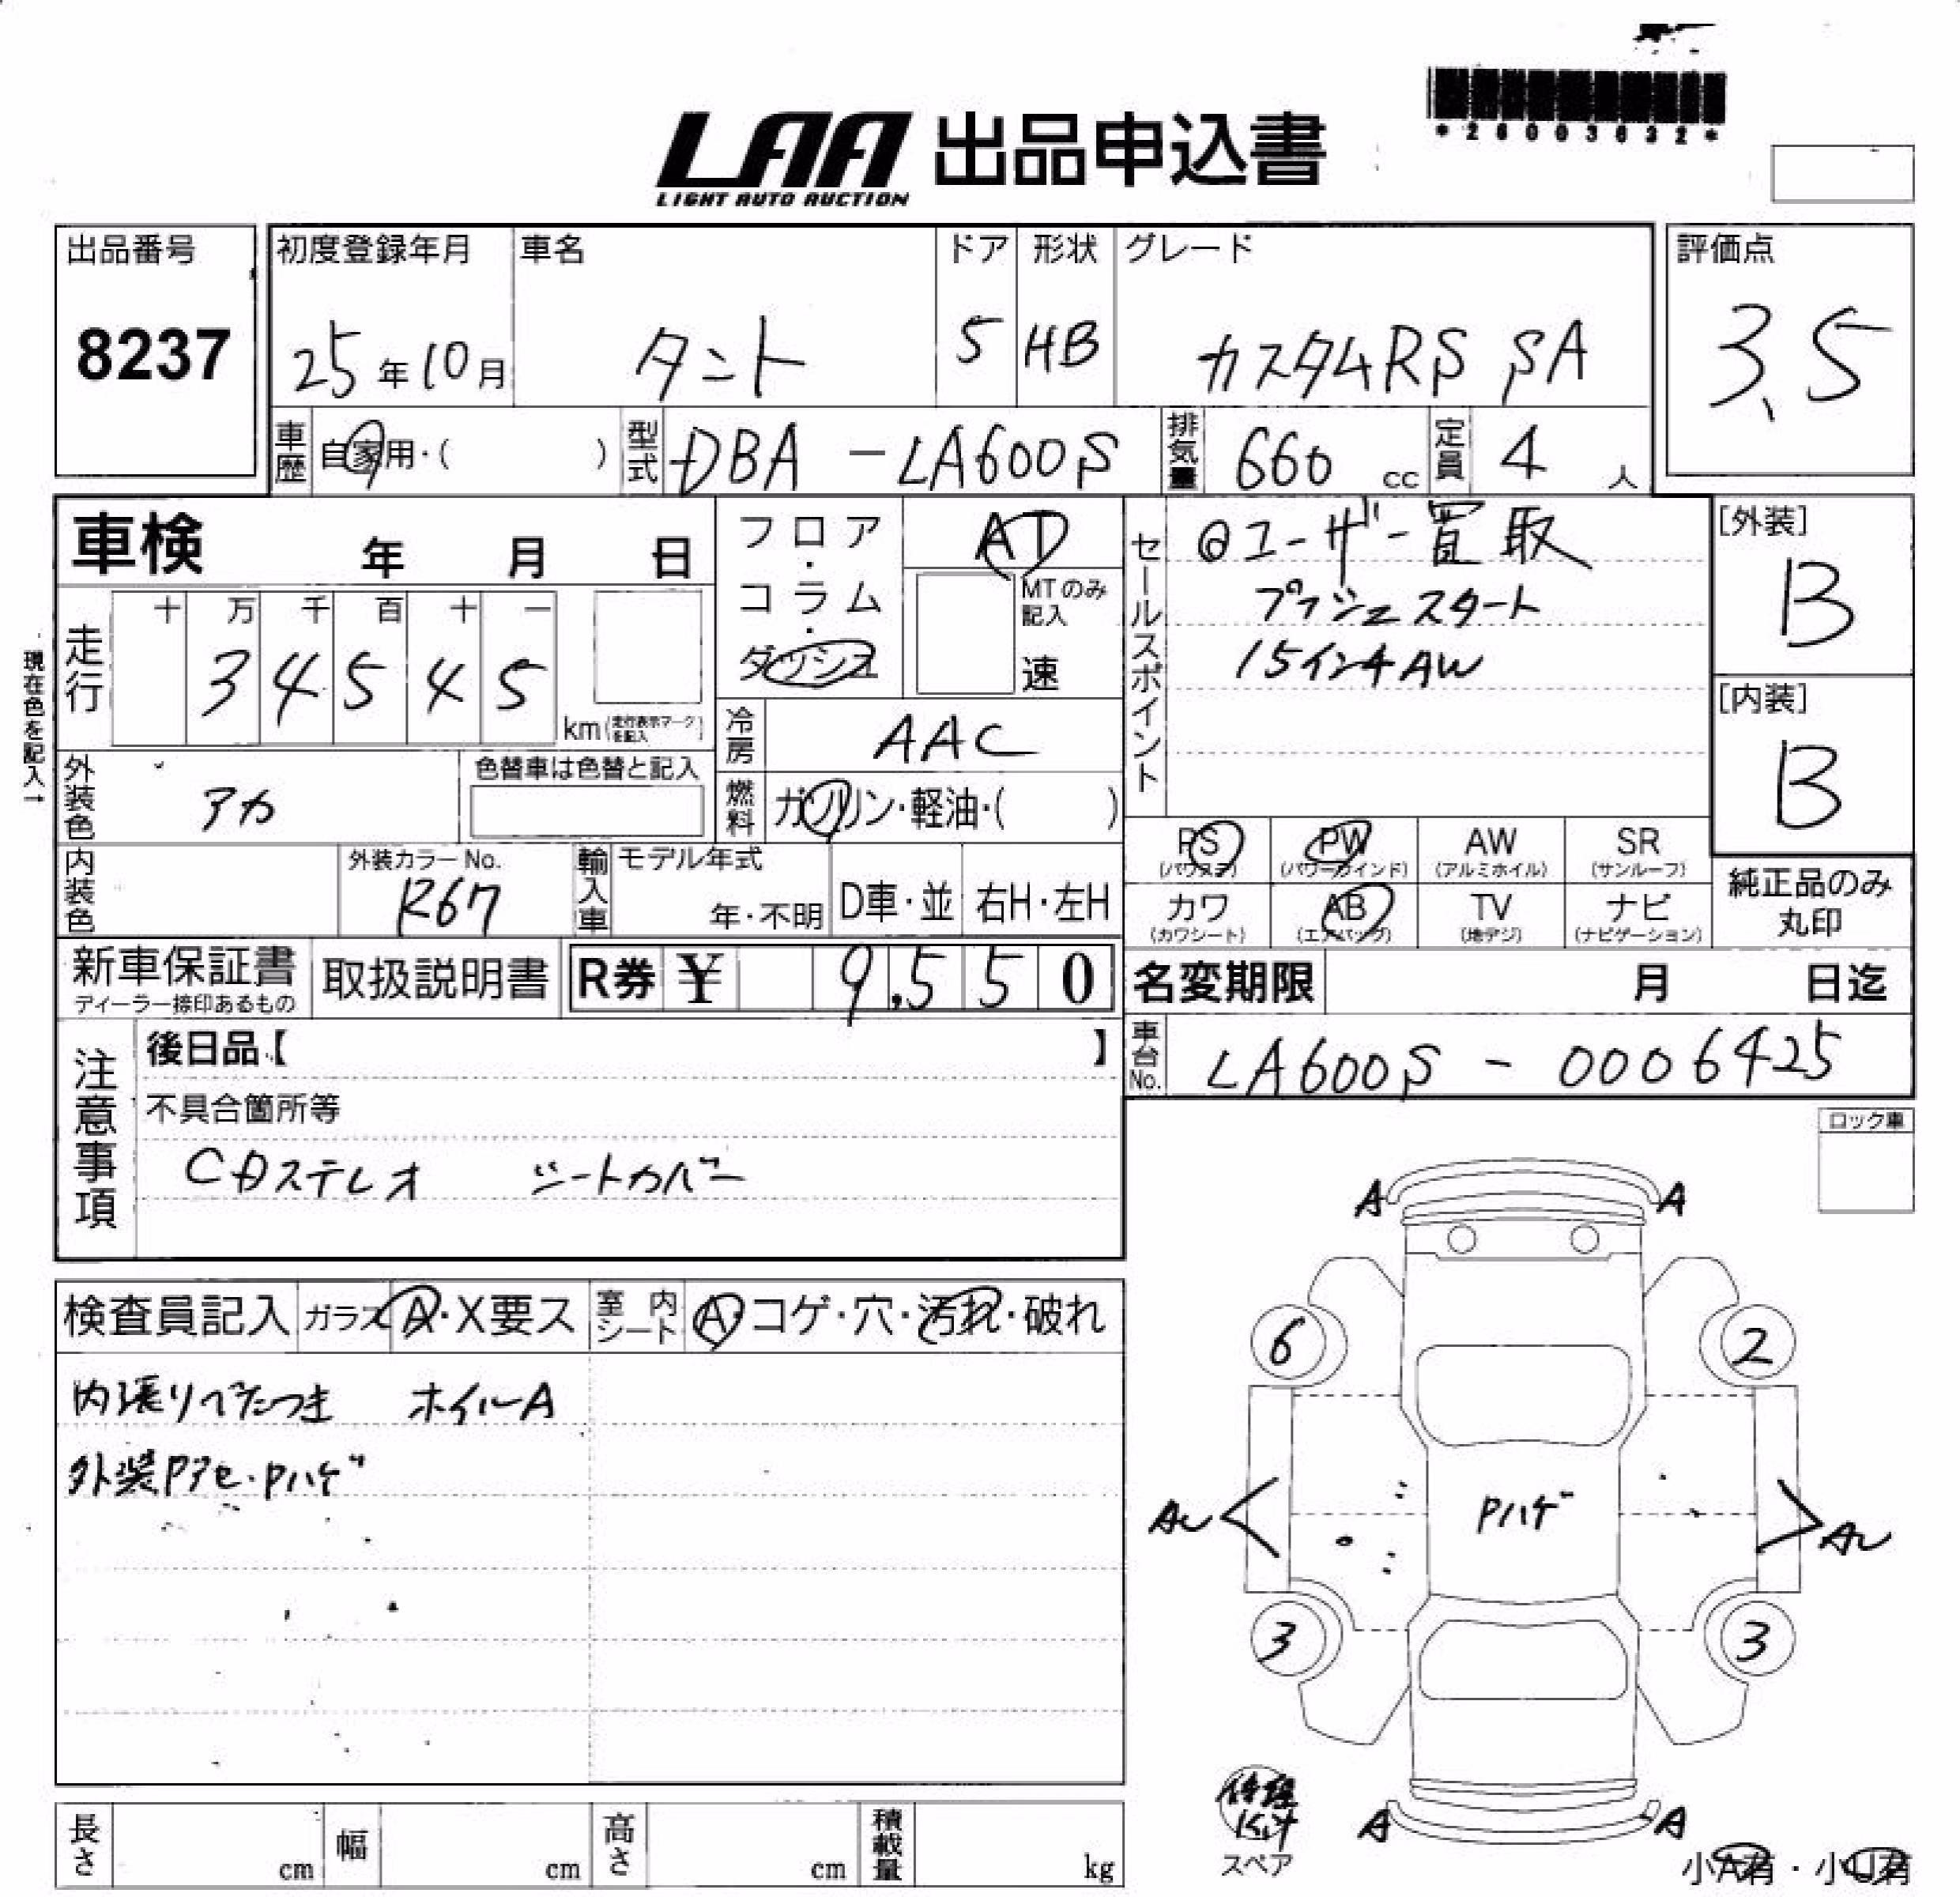 *26003632*
LAA 出品申込書
LIGHT AUTO AUCTION
出品番号
8237
初度登録年月
25年10月
車名
タント
ドア
5
形状
HB
グレード
カスタムRS SA
評価点
3.5
車歴
自家用・( )
型式
DBA-LA600S
排気量
660 cc
定員
4 人
車検 年 月 日
フロア・コラム・ダッシュ
AT
MTのみ記入
速
セールスポイント
@ユーザー買取
プッシュスタート
15インチAW
[外装]
B
[内装]
B
現在色を記入→
走行
十 万 千 百 十 一
3 4 5 4 5
km(走行表示マークを記入)
冷房
AAC
外装色
アカ
色替車は色替と記入
燃料
ガソリン・軽油・( )
内装色
外装カラーNo.
R67
輸入車
モデル年式
年・不明
D車・並
右H・左H
PS (パワステ)
PW (パワーウインド)
AW (アルミホイル)
SR (サンルーフ)
カワ (カワシート)
AB (エアバッグ)
TV (地デジ)
ナビ (ナビゲーション)
純正品のみ丸印
新車保証書
ディーラー捺印あるもの
取扱説明書
R券 ¥ 9,550
名変期限 月 日迄
車台No.
LA600S - 0006425
注意事項
後日品【 】
不具合箇所等
CDステレオ シートカバー
ロック車
検査員記入
ガラス A・X要ス
室内シート A・コゲ・穴・汚れ・破れ
内張りべたつき ホイルA
外装Pアセ・Pハゲ
A A
6 2
AU Pハゲ AU
3 3
A A
修理キット
スペア
小A有・小U有
長さ cm
幅 cm
高さ cm
積載量 kg